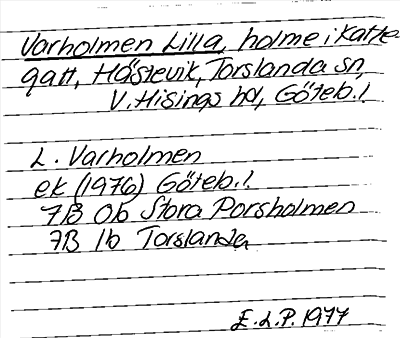 Varholmen Lilla, holme i Katte
gatt, Hästevik, Torslanda sn,
V. Hisings hd, Göteb. l.
L. Varholmen
ek (1976) Göteb. l.
7B 0b Stora Porsholmen
7B 1b Torslanda
E.L.P. 1977